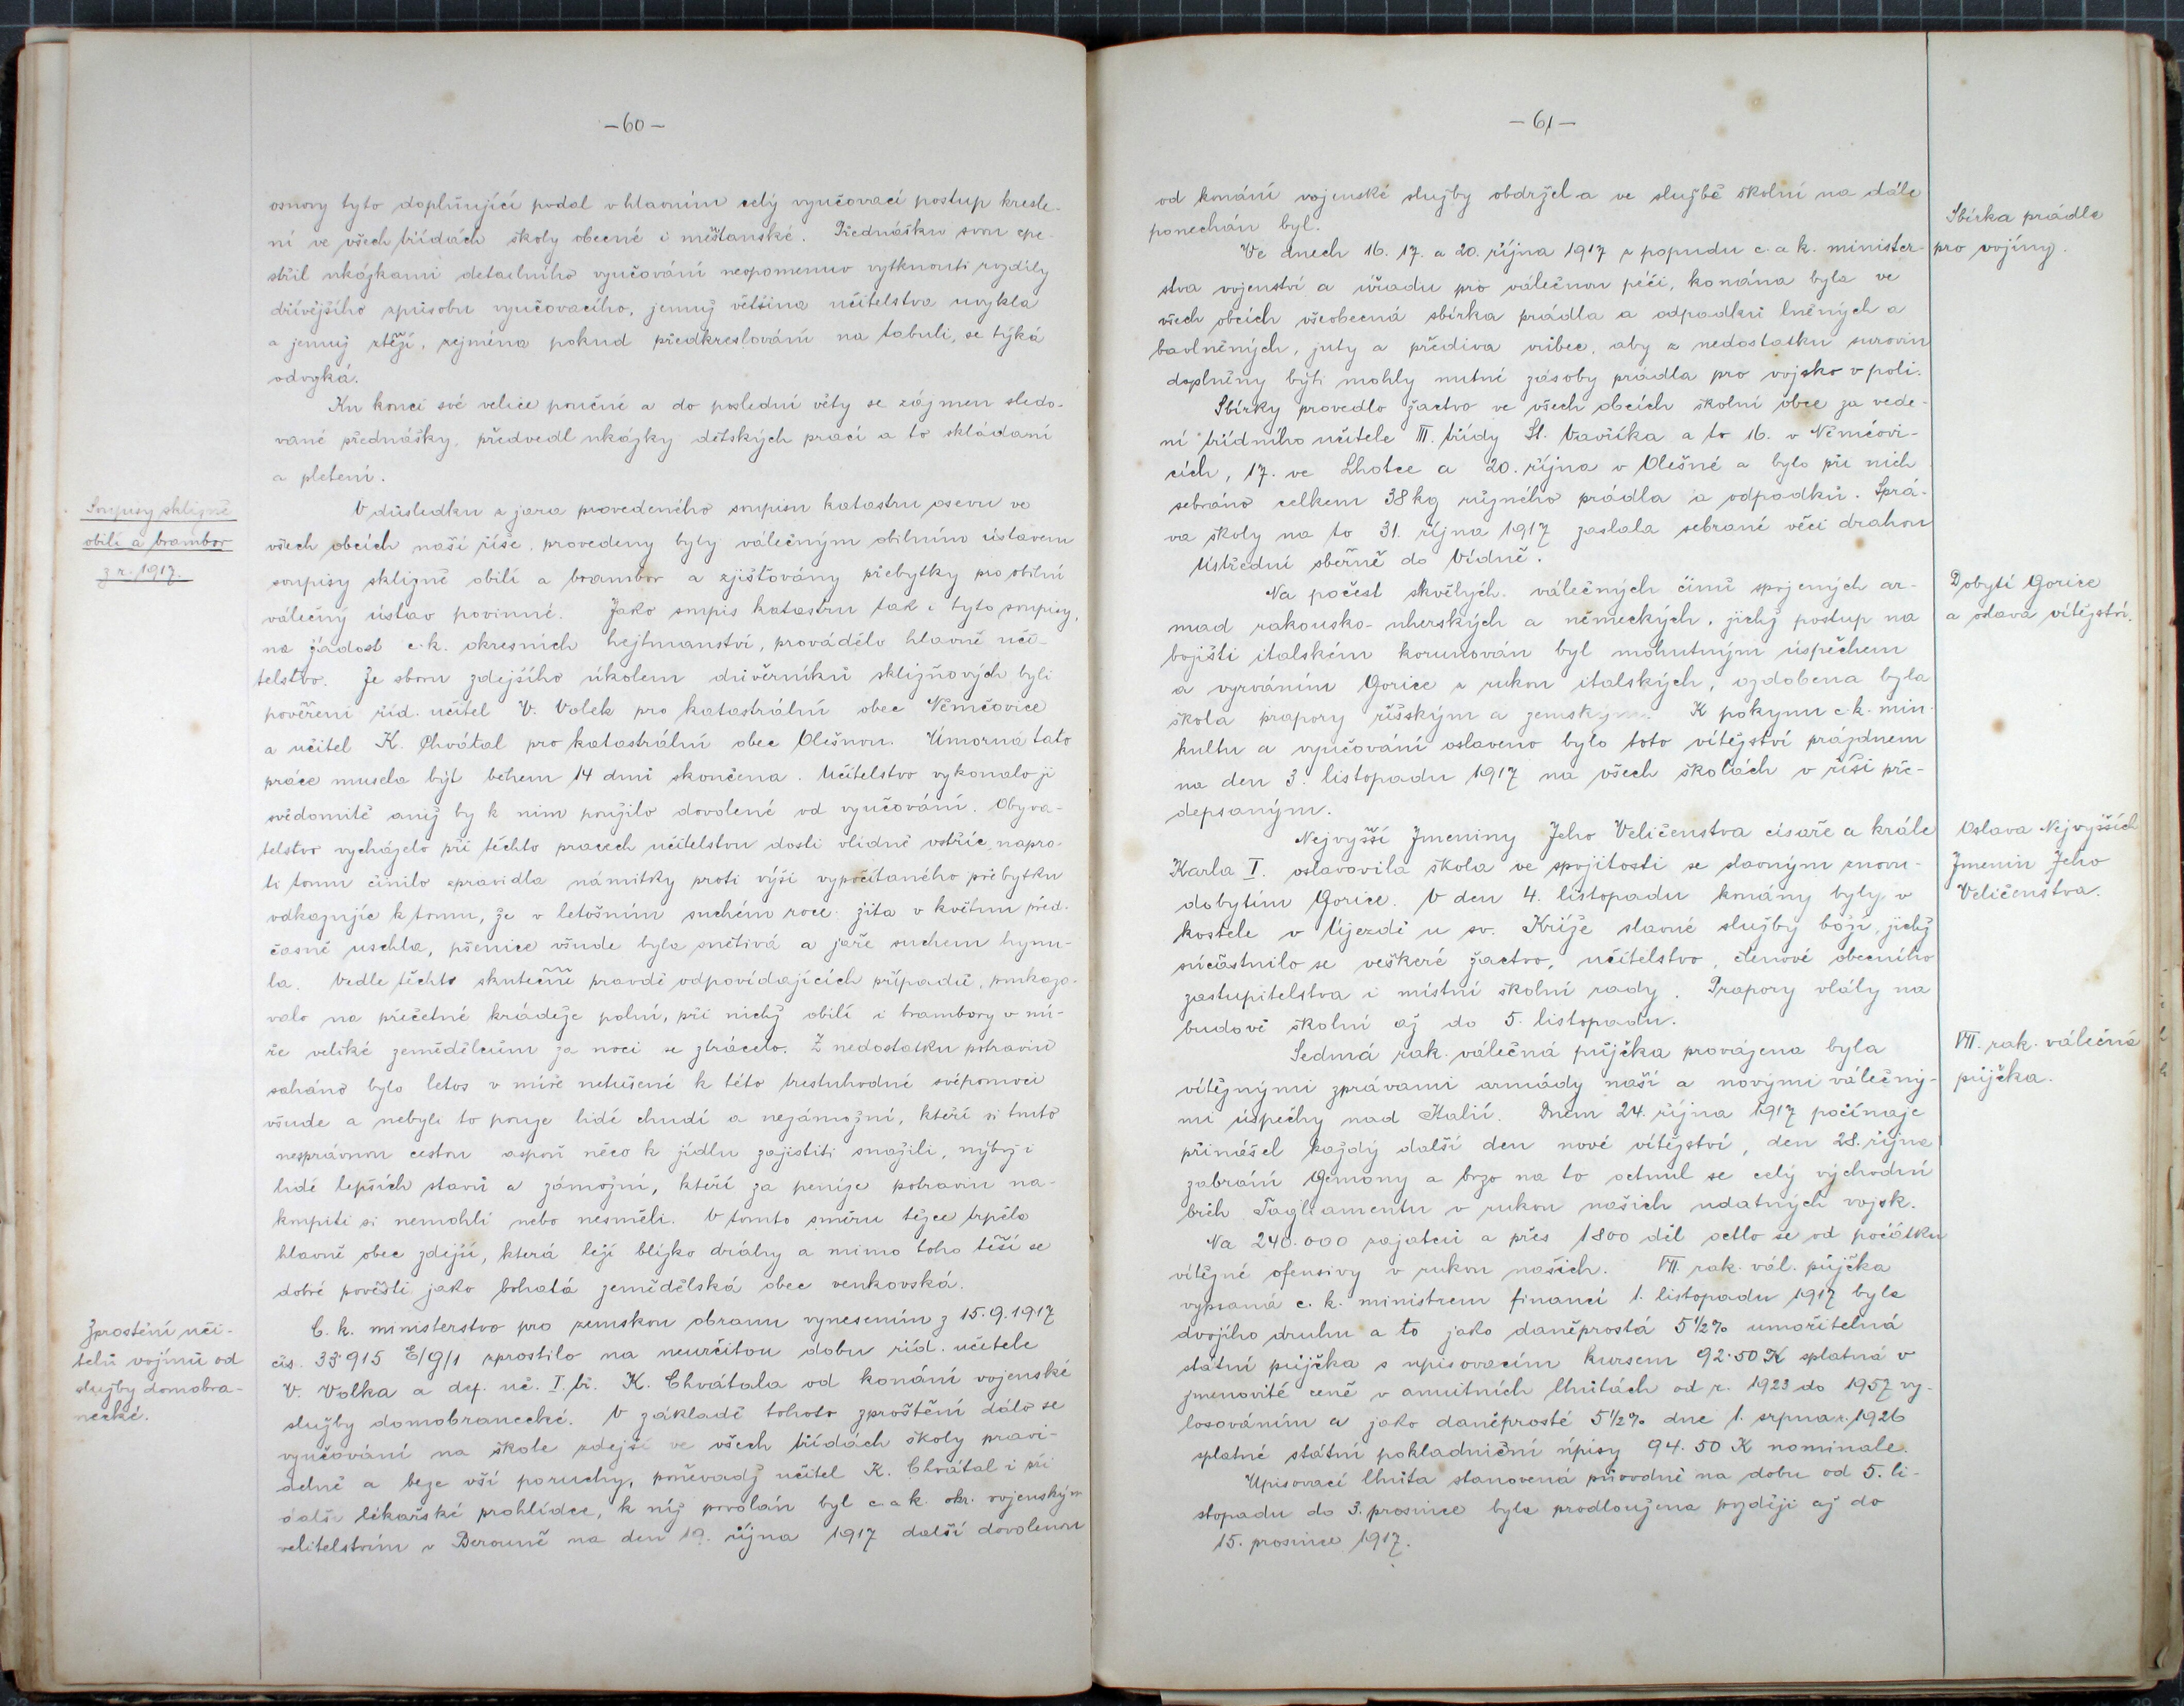 —60—
osnovy tyto doplňující podal v hlavním celý vyučovací postup kresle-
ní ve všech třídách školy obecné i měšťanské. Přednášku svou zpe-
střil ukázkami detailního vyučování neopomenuv vytknouti rozdíly
dřívějšího způsobu vyučovacího, jemuž většina učitelstva uvykla
a jemuž stěží, zejména pokud předkreslování na tabuli, se týká
odvyká.
Ku konci své velice poučné a do poslední věty se zájmem sledo-
vané přednášky, předvedl ukázky dětských prací a to skládaní
a pletení.
Soupisy sklizně
obilí a brambor
z r. 1917.
V důsledku z jara provedeného soupisu katastru osevu ve
všech obcích naší říše, provedeny byly válečným obilním ústavem
soupisy sklizně obilí a brambor a zjišťovány přebytky pro obilní
válečný ústav povinné. Jako soupis katastru tak i tyto soupisy,
na žádost c.k. okresních hejtmanství, provádělo hlavně uči-
telstvo. Ze sboru zdejšího úkolem důvěrníků sklizňových byli
pověřeni říd. učitel V. Volek pro katastrální obec Němčovice
a učitel K. Chvátal pro katastrální obec Olešnou. Úmorná tato
práce musela být během 14 dnů skončena. Učitelstvo vykonalo ji
svědomitě aniž by k nim použilo dovolené od vyučování. Obyva-
telstvo vycházelo při těchto pracech učitelstvu dosti vlídně vstříc, napro-
ti tomu činilo zpravidla námitky proti výši vypočítaného přebytku
odkazujíc k tomu, že v letošním suchém roce: žita v květnu před-
časně uschla, pšenice všude byla snětivá a jaře suchem hynu-
la. Vedle těchto skutečně pravdě odpovídajících případů, poukazo-
valo na přečetné krádeže polní, při nichž obilí i brambory v mí-
ře veliké zemědělcům za noci se ztrácelo. Z nedostatku potravin
saháno bylo letos v míře netušené k této trestuhodné svépomoci
všude a nebyli to pouze lidé chudí a nezámožní, kteří si touto
nesprávnou cestou aspoň něco k jídlu zajistiti snažili, nýbrž i
lidé lepších stavů a zámožní, kteří za peníze potravin na-
koupiti si nemohli nebo nesměli. V tomto směru těžce trpěla
hlavně obec zdejší, která leží blízko dráhy a mimo toho těší se
dobré pověsti jako bohatá zemědělská obec venkovská.
Zproštění uči-
telů vojínů od
služby domobra-
necké.
C. k. ministerstvo pro zemskou obranu vynesením z 15.9.1917
čís. 33915 E/G/1 zprostilo na neurčitou dobu říd. učitele
V. Volka a def. uč. I. tř. K. Chvátala od konání vojenské
služby domobranecké. V základě tohoto zproštění dálo se
vyučování na škole zdejší ve všech třídách školy pravi-
delně a beze vší poruchy, poněvadž učitel K. Chvátal i při
další lékařské prohlídce, k níž povolán byl c. a k. okr. vojenským
velitelstvím v Berouně na den 19. října 1917 další dovolenou
—61—
od konání vojenské služby obdržel a ve službě školní na dále
ponechán byl.
Sbírka prádla
pro vojíny.
Ve dnech 16. 17. a 20. října 1917 z popudu c. a k. minister-
stva vojenství a úřadu pro válečnou péči, konána byla ve
všech obcích všeobecná sbírka prádla a odpadků lněných a
bavlněných, juty a přediva vůbec, aby z nedostatku surovin
doplněny býti mohly nutné zásoby prádla pro vojsko v poli.
Sbírky provedlo žactvo ve všech obcích školní obce za vede-
ní třídního učitele III. třídy St. Vavříka a to 16. v Němčovi-
cích, 17. ve Lhotce a 20. října v Olešné a bylo při nich
sebráno celkem 38 kg různého prádla a odpadků. Sprá-
va školy na to 31. října 1917 zaslala sebrané věci drahou
Ústřední sběrně do Vídně.
Dobytí Gorice
a oslava vítězství.
Na počest skvělých válečných činů spojených ar-
mad rakousko-uherských a německých, jichž postup na
bojišti italském korunován byl mohutným úspěchem
a vyrváním Gorice z rukou italských, ozdobena byla
škola prapory říšským a zemským. K pokynu c.k. min.
kultu a vyučování oslaveno bylo toto vítězství prázdnem
na den 3. listopadu 1917 na všech školách v říši pře-
depsaným.
Oslava Nejvyšších
Jmenin Jeho
Veličenstva.
Nejvyšší Jmeniny Jeho Veličenstva císaře a krále
Karla I. oslavovila škola ve spojitosti se slavným znovu-
dobytím Gorice. V den 4. listopadu konány byly v
kostele v Újezdě u sv. Kříže slavné služby boží, jichž
súčastnilo se veškeré žactvo, učitelstvo, členové obecního
zastupitelstva i místní školní rady. Prapory vlály na
budově školní až do 5. listopadu.
VII. rak. válečná
půjčka.
Sedmá rak. válečná půjčka provázena byla
vítěznými zprávami armády naší a novými válečný-
mi úspěchy nad Italií. Dnem 24. října 1917 počínaje
přinášel každý další den nové vítězství, den 28. října
zabrání Gemony a brzo na to octnul se celý východní
břeh Tagliamentu v rukou našich udatných vojsk.
Na 240.000 zajatců a přes 1800 děl octlo se od počátku
vítězné ofensivy v rukou našich. VII. rak. vál. půjčka
vypsaná c. k. ministrem financí 1. listopadu 1917 byla
dvojího druhu a to jako daněprostá 5½% umořitelná
statní půjčka s upisovacím kursem 92·50 K splatná v
jmenovité ceně v anuitních lhůtách od r. 1923 do 1957 vy-
losováním a jako daněprosté 5½% dne 1. srpna r. 1926
splatné státní pokladniční úpisy 94.50 K nominale.
Upisovací lhůta stanovená původně na dobu od 5. li-
stopadu do 3. prosince byla prodloužena později až do
15. prosince 1917.